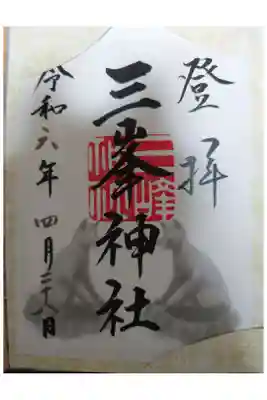 登拝
三峯神社
令和六年四月二十八日